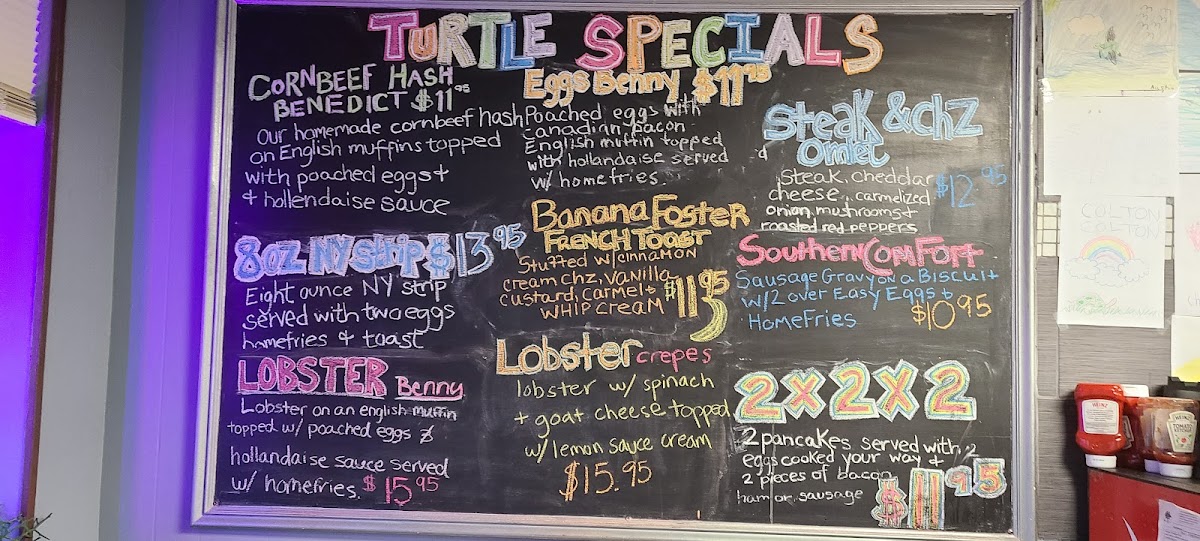 TURTLE SPECIALS
CORNBEEF HASH
BENEDICT $11 95
Our homemade cornbeef hash
on English muffins topped
with poached eggs +
& hollendaise sauce
Eggs Benny $11 95
Poached eggs with
Canadian bacon
English muffin topped
with hollandaise served
w/ homefries.
Steak & chz
Omlet
Steak, cheddar
cheese, carmelized
onion, mushrooms +
roasted red peppers
$12 95
8oz NY strip $13 95
Eight ounce NY strip
served with two eggs
homefries & toast
Banana Foster
FRENCH TOAST
Stuffed w/cinnamon
cream chz, vanilla
custard, carmel +
whip cream
$11 95
Southern Comfort
Sausage Gravy on a Biscuit
w/2 over Easy Eggs +
HomeFries
$10 95
LOBSTER Benny
Lobster on an english muffin
topped w/ poached eggs &
hollandaise sauce served
w/ homefries. $15 95
Lobster crepes
lobster w/ spinach
+ goat cheese topped
w/ lemon sauce cream
$15.95
2x2x2
2 pancakes served with 2
eggs cooked your way +
2 pieces of bacon
ham or sausage
$11 95
COLTON
COLTON
HEINZ
HEINZ
TOMATO
KETCHUP